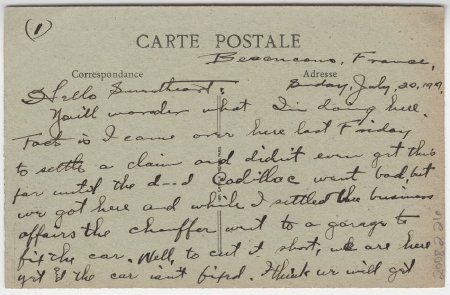 (1)
CARTE POSTALE
Besancons, France,
Correspondance
Adresse
Sunday, July, 20, 1919.
Hello Sweetheart:
You'll wonder what I'm doing here.
Fact is I came over here last Friday
to settle a claim and didn't even get this
far until the d--d Cadillac went bad, but
we got here and while I settled the business
affairs the chauffer went to a garage to
fix the car. Well, to cut it short, we are here
yet & the car isn't fixed. I think we will get
2008.2.26